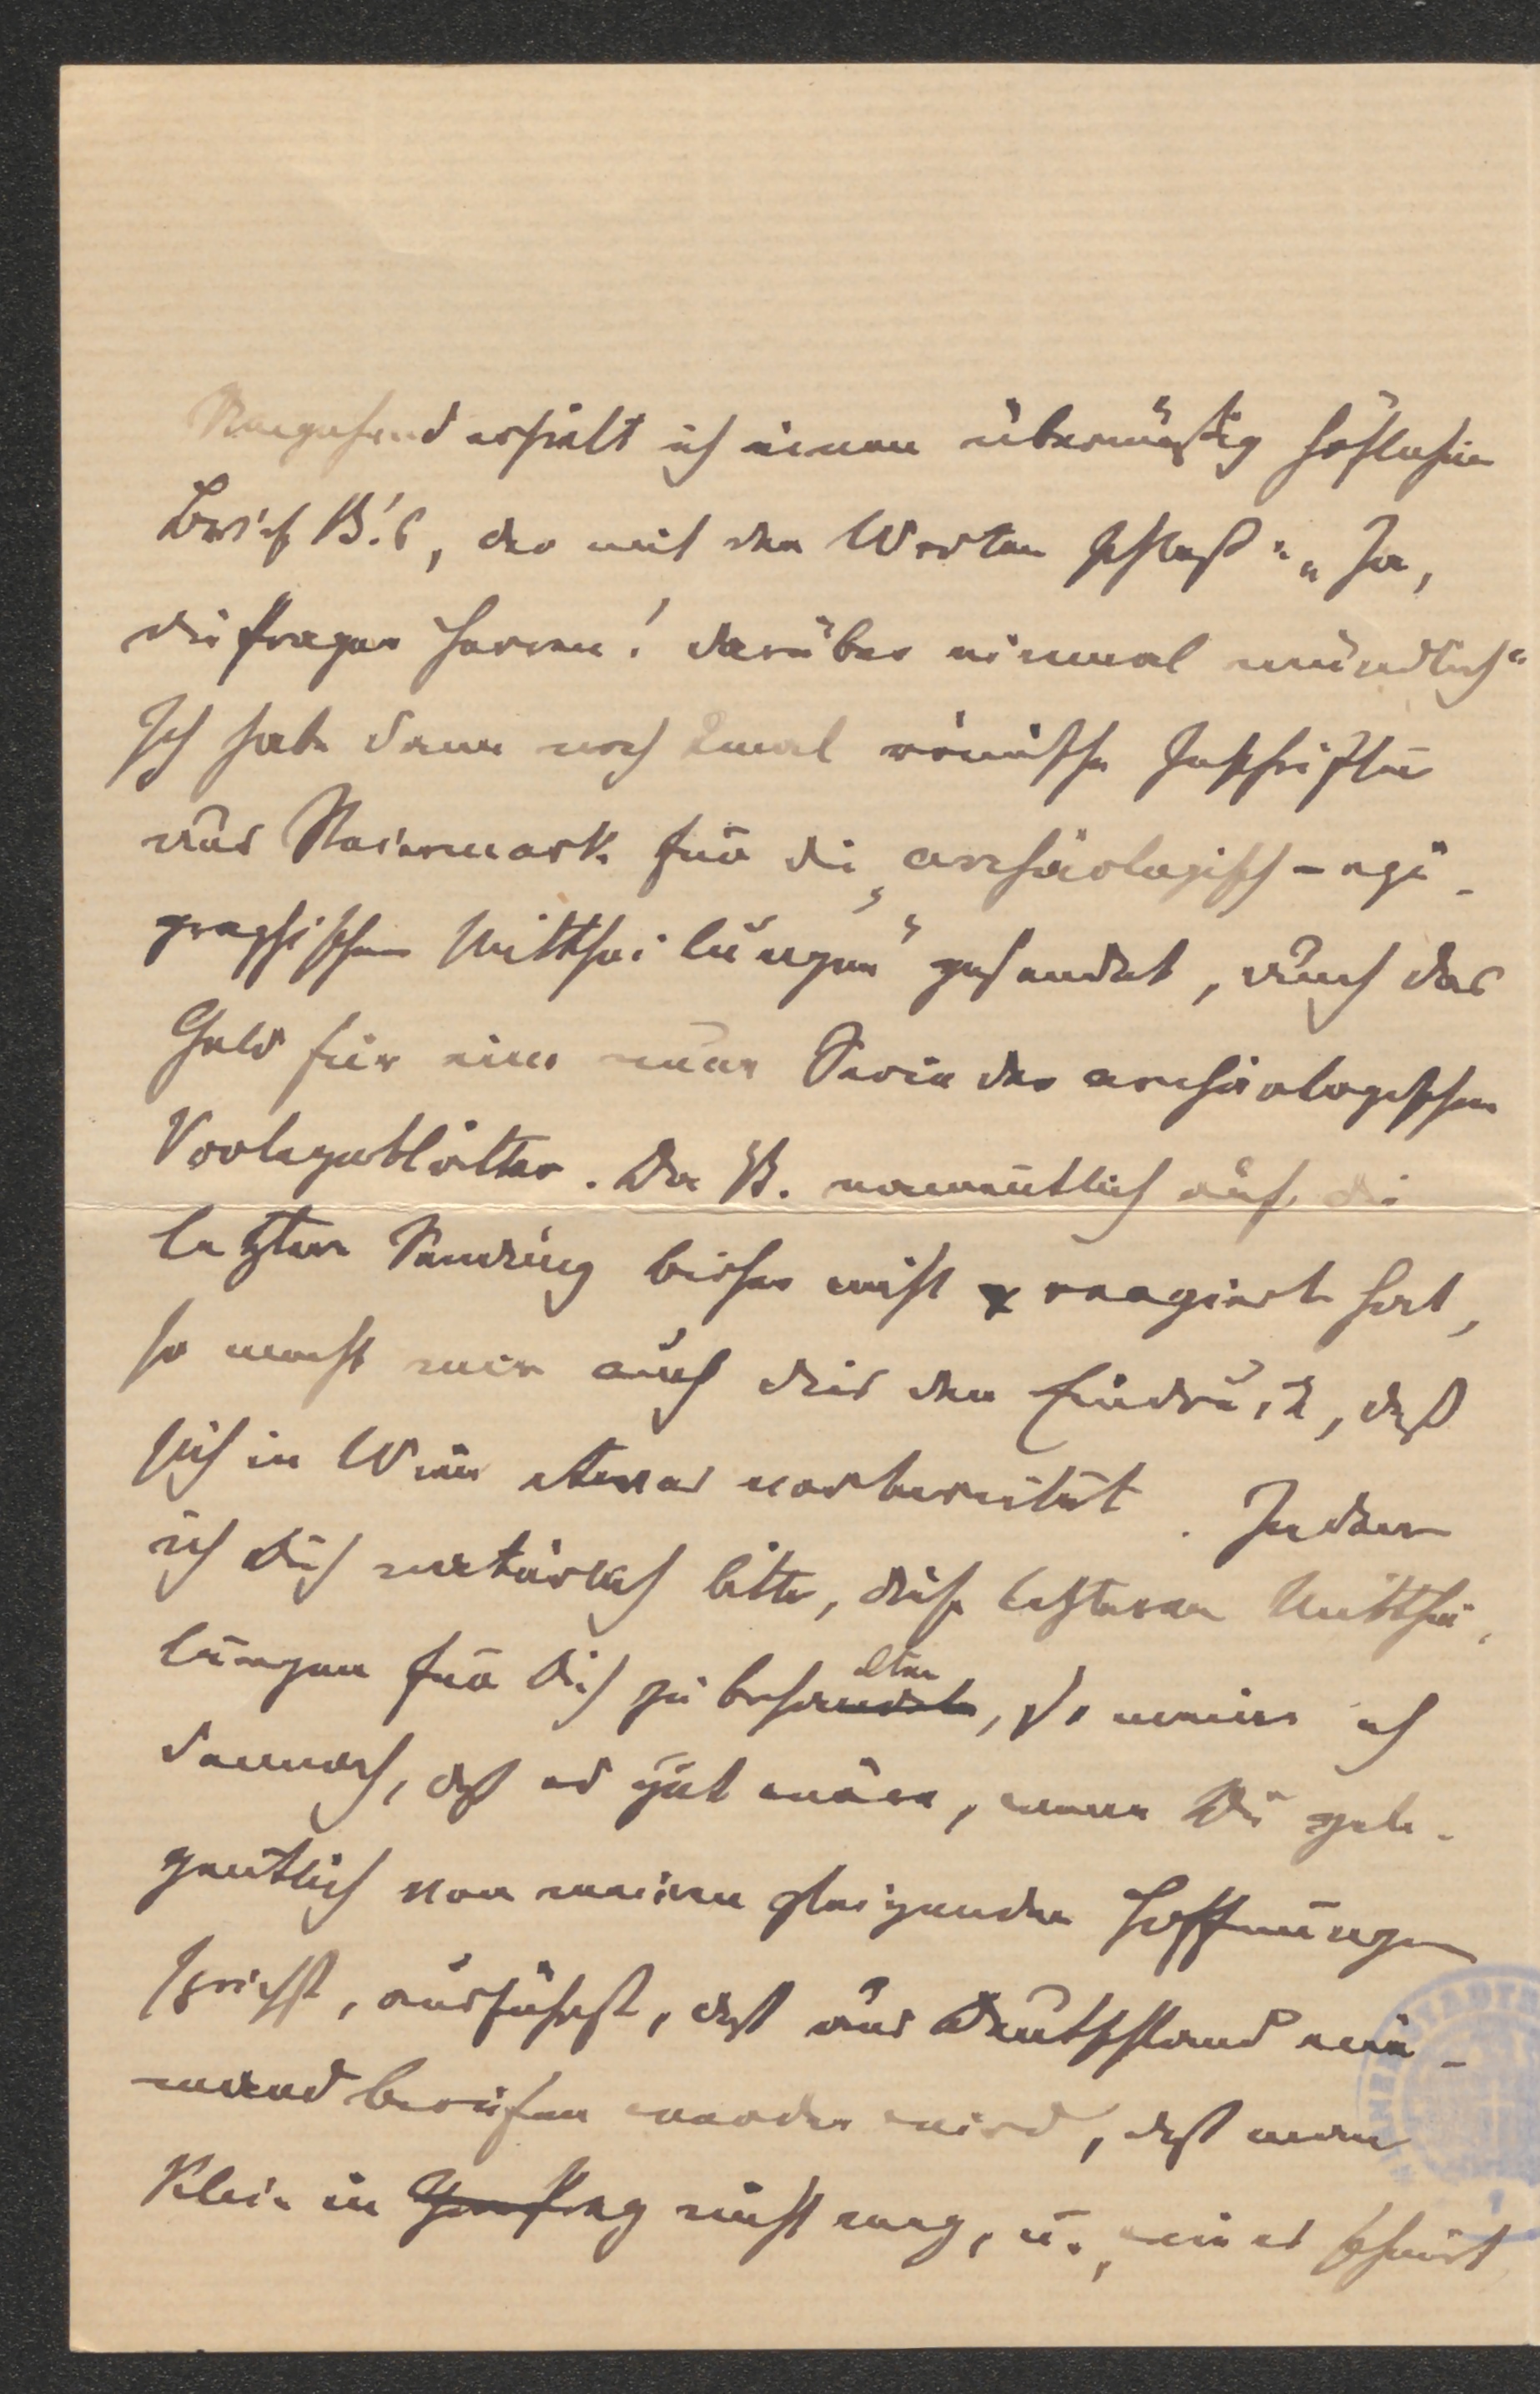 Umgehend erhielt ich einen übermäßig höflichen
Brief B.'s, der mit den Worten schloß: „Ja,
die Prager Herren! darüber einmal mündlich“
Ich habe dann noch 2mal römische Inschriften
aus Steiermark für die „archäologisch-epi-
graphischen Mittheilungen“ gesendet, auch das
Geld für eine neue Serie der archäologischen
Vorlegeblätter. Da B. namentlich auf die
letztere Sendung bisher nicht reagiert hat,
so macht mir auch dies den Eindruck, daß
sich in Wien etwas vorbereitet. Indem
ich Dich natürlich bitte, diese letzteren Mitthei-
lungen für Dich zu behalten, so meine ich
dennoch, daß es gut wäre, wenn Du gele-
gentlich von meinen steigenden Hoffnungen
sprichst, ausführst, daß aus Deutschland nie-
mand berufen werden wird, daß man
Klein in Prag nicht mag, u., wie es scheint